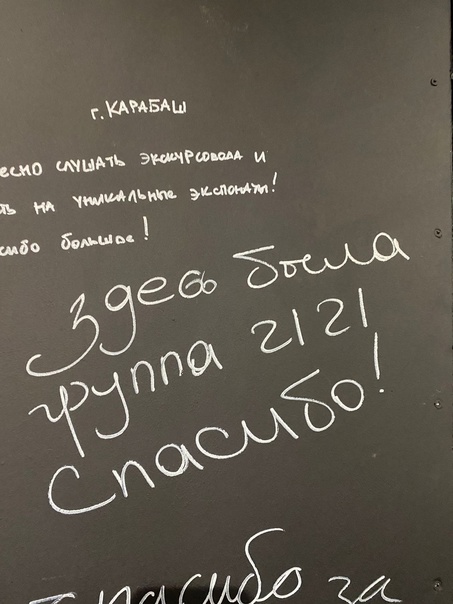 г. КАРАБАШ
есно слушать экскурсовода и
ть на уникальные экспонаты!
сибо большое!
Здесь была
группа 2121
Спасибо!
Спасибо за